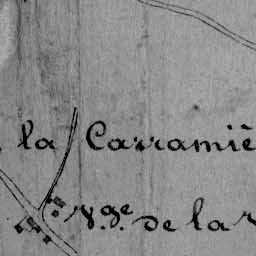 la Carramiè
V.ge de la